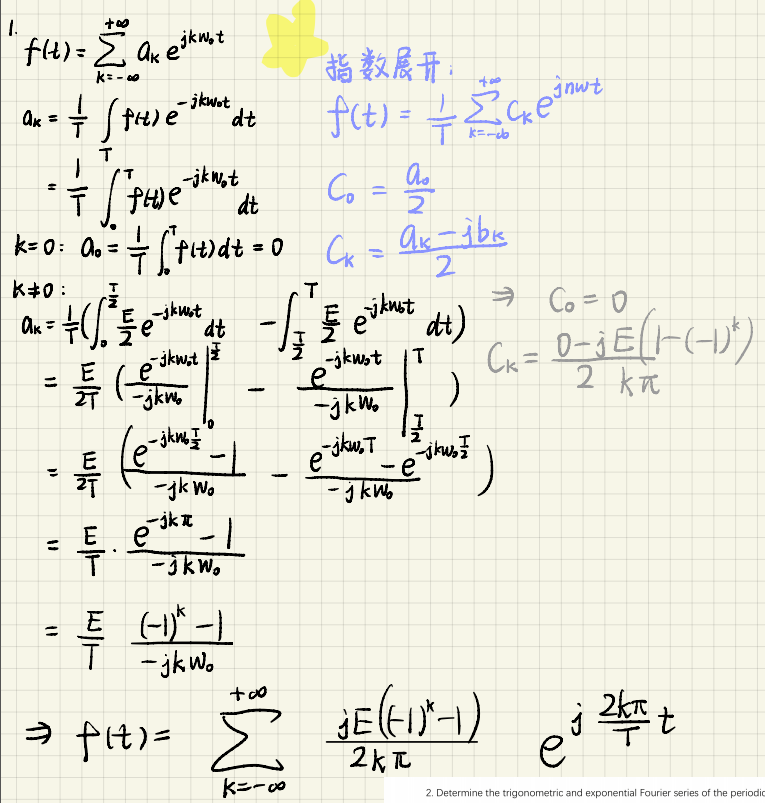 1.
f(t) = \sum_{k=-∞}^{+∞} a_k e^{jkw_0t}
a_k = \frac{1}{T} \int_T f(t) e^{-jkw_0t} dt
= \frac{1}{T} \int_0^T f(t) e^{-jkw_0t} dt
k=0: a_0 = \frac{1}{T} \int_0^T f(t) dt = 0
k≠0:
a_k = \frac{1}{T} ( \int_0^{\frac{T}{2}} \frac{E}{2} e^{-jkw_0t} dt - \int_{\frac{T}{2}}^T \frac{E}{2} e^{-jkw_0t} dt )
= \frac{E}{2T} ( \frac{e^{-jkw_0t}}{-jkw_0} |_0^{\frac{T}{2}} - \frac{e^{-jkw_0t}}{-jkw_0} |_{\frac{T}{2}}^T )
= \frac{E}{2T} ( \frac{e^{-jkw_0\frac{T}{2}} - 1}{-jkw_0} - \frac{e^{-jkw_0T} - e^{-jkw_0\frac{T}{2}}}{-jkw_0} )
= \frac{E}{T} · \frac{e^{-jkπ} - 1}{-jkw_0}
= \frac{E}{T} \frac{(-1)^k - 1}{-jkw_0}
⇒ f(t) = \sum_{k=-∞}^{+∞} \frac{jE((-1)^k - 1)}{2kπ} e^{j\frac{2kπ}{T}t}
指数展开:
f(t) = \frac{1}{T} \sum_{k=-∞}^{+∞} C_k e^{jnwt}
C_0 = \frac{a_0}{2}
C_k = \frac{a_k - jb_k}{2}
⇒ C_0 = 0
C_k = \frac{0 - jE(1-(-1)^k)}{2 kπ}
2. Determine the trigonometric and exponential Fourier series of the periodic